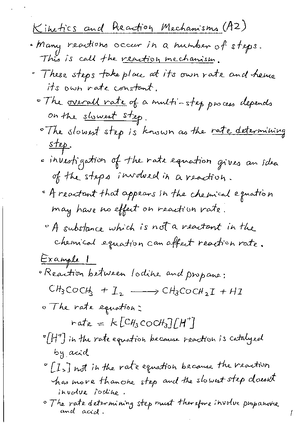 Kinetics and Reaction Mechanisms (A2)
• Many reactions occur in a number of steps.
This is call the reaction mechanism.
• These steps take place at its own rate and hence
its own rate constant.
• The overall rate of a multi-step process depends
on the slowest step.
• The slowest step is known as the rate determining
step.
• investigation of the rate equation gives an idea
of the steps involved in a reaction.
• A reactant that appears in the chemical equation
may have no effect on reaction rate.
• A substance which is not a reactant in the
chemical equation can affect reaction rate.
Example 1
• Reaction between Iodine and propane:
CH₃COCH₃ + I₂ ⟶ CH₃COCH₂I + HI
• The rate equation:
rate = k[CH₃COCH₃][H⁺]
• [H⁺] in the rate equation because reaction is catalysed
by acid
• [I₂] not in the rate equation because the reaction
has more than one step and the slowest step doesnt
involve iodine.
• The rate determining step must therefore involve propanone
and acid.
1